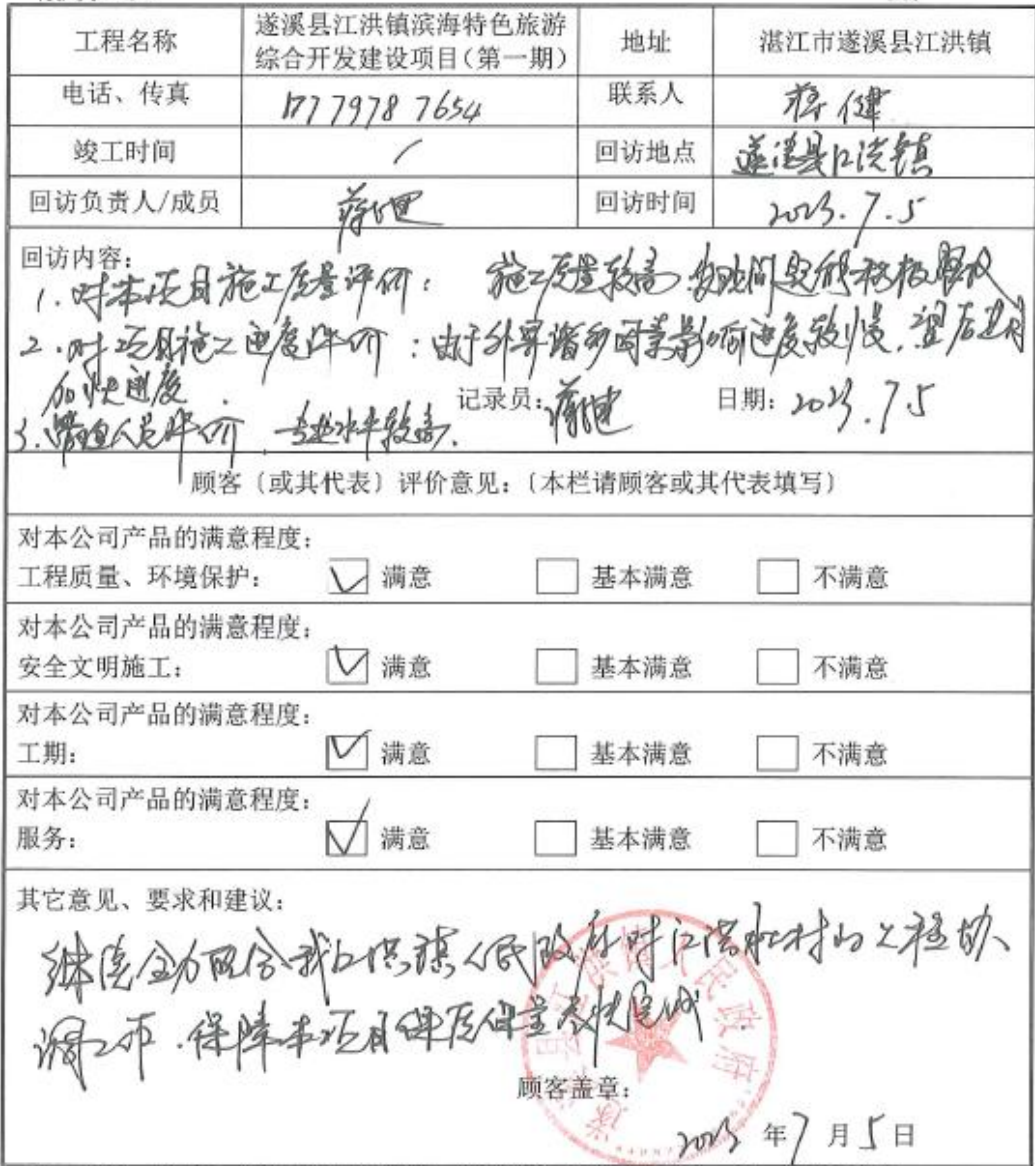 工程名称 遂溪县江洪镇滨海特色旅游 地址 湛江市遂溪县江洪镇
综合开发建设项目(第一期)
电话、传真 177 7978 7654 联系人 健
竣工时间 / 回访地点 遂溪县江洪镇
回访负责人/成员 回访时间 2023.7.5
回访内容:
1.对本项目施工质量评价: 施工质量较高,发现问题能积极整改
2.对项目施工进度评价:由于外界诸多因素影响进度较慢,望后进
加快进度.
记录员: 日期:2023.7.5
3.管理人员评价 专业水平较高.
顾客〔或其代表〕评价意见:〔本栏请顾客或其代表填写〕
对本公司产品的满意程度:
工程质量、环境保护: ☑ 满意 □ 基本满意 □ 不满意
对本公司产品的满意程度:
安全文明施工: ☑ 满意 □ 基本满意 □ 不满意
对本公司产品的满意程度:
工期: ☑ 满意 □ 基本满意 □ 不满意
对本公司产品的满意程度:
服务: ☑ 满意 □ 基本满意 □ 不满意
其它意见、要求和建议:
继续全力配合我江洪镇人民政府对江洪村的工程协
调工作.保障本项目保质保量尽快完成
遂溪县江洪镇人民政府
顾客盖章:
2023 年 7 月 5 日